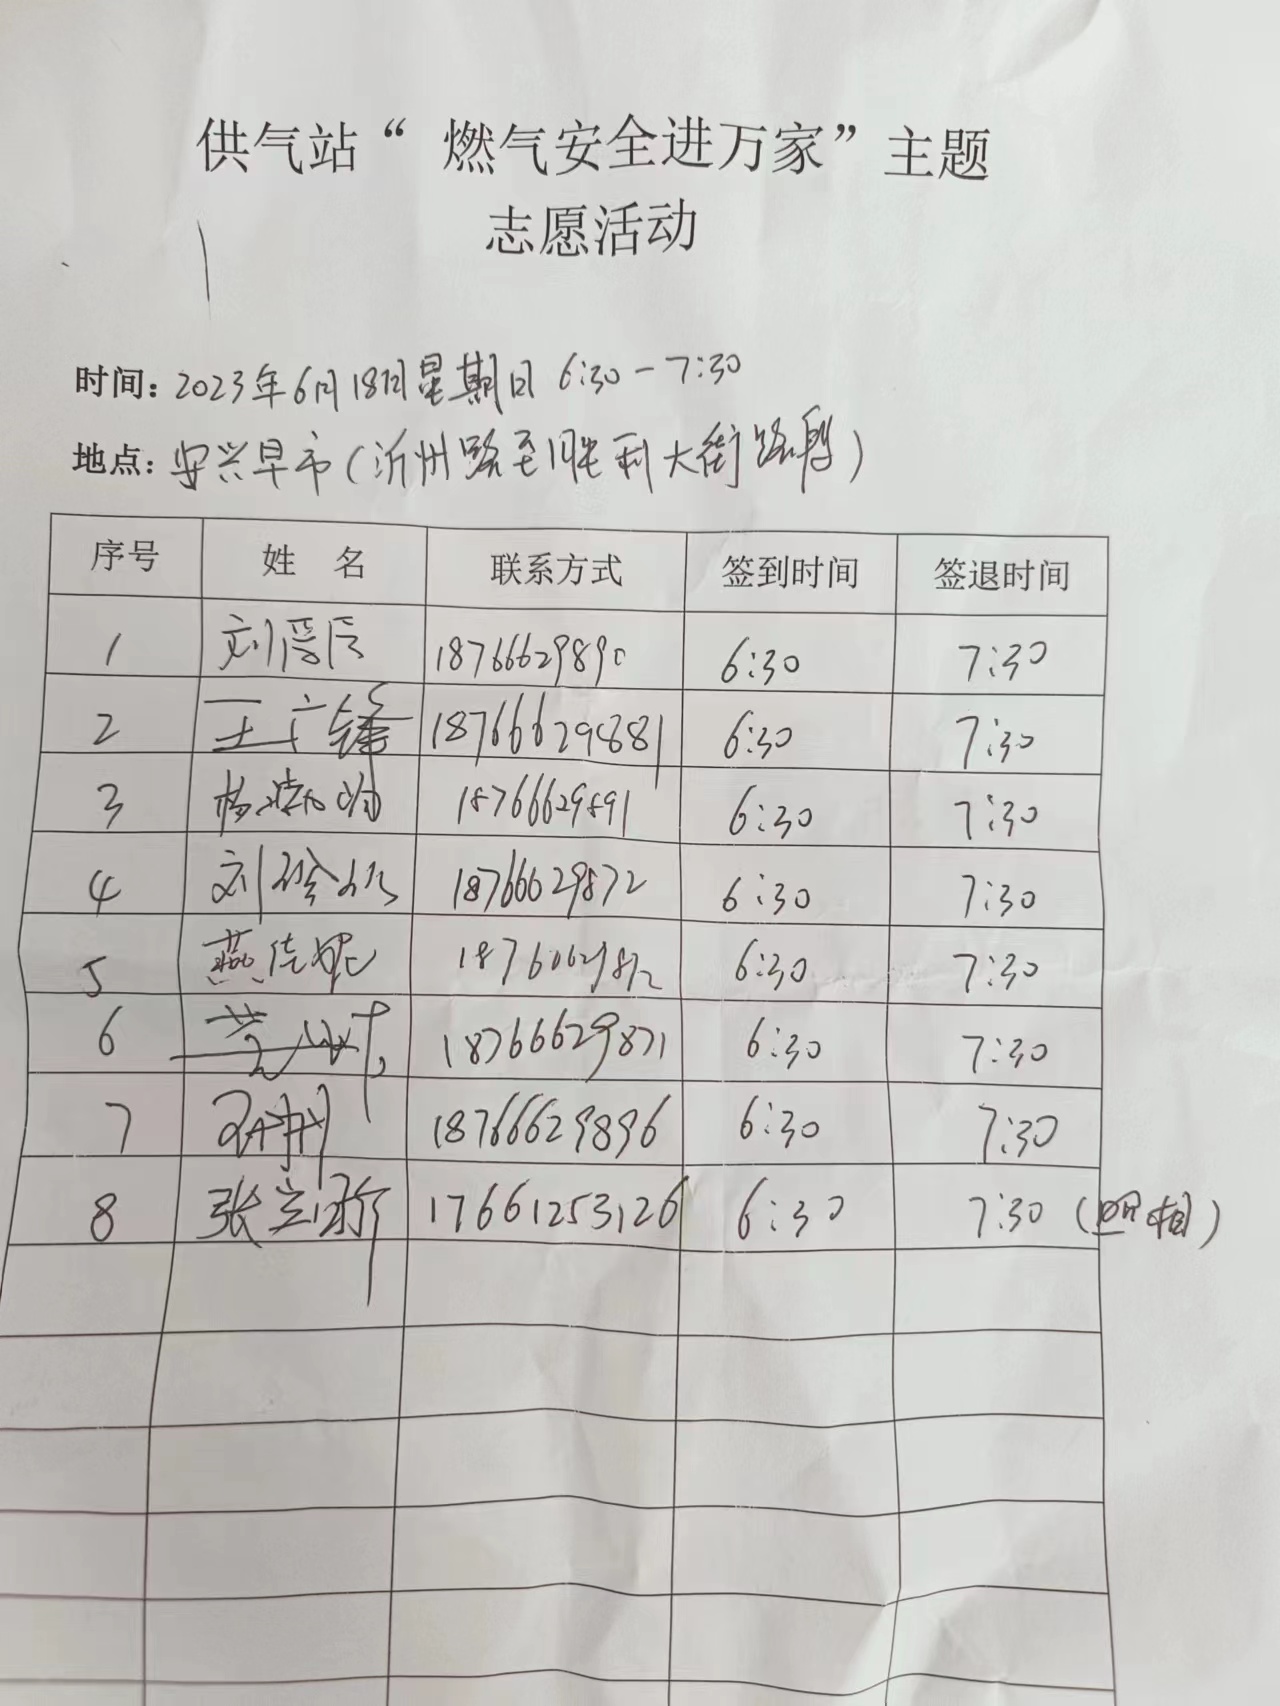 供气站“ 燃气安全进万家”主题
志愿活动
时间：2023年6月18日星期日 6:30-7:30
地点：安兴早市（沂州路至胜利大街路段）
序号 姓 名 联系方式 签到时间 签退时间
1 刘 18766629890 6:30 7:30
2 王广锋 18766629881 6:30 7:30
3 杨 18766629891 6:30 7:30
4 刘 18766629872 6:30 7:30
5 燕 6:30 7:30
6 18766629871 6:30 7:30
7 18766629896 6:30 7:30
8 张立 17661253126 6:30 7:30（照相）